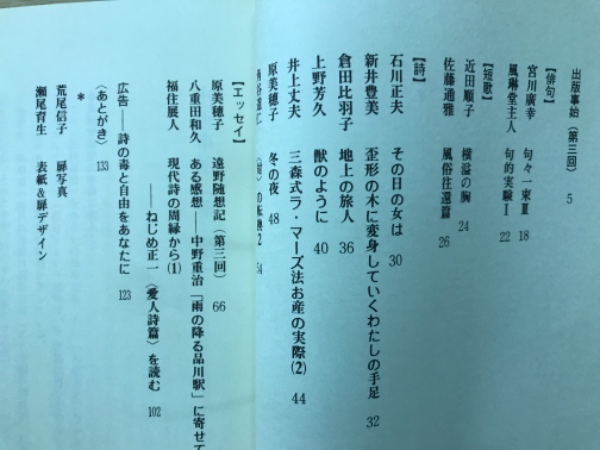 出版事始（第三回） 5
【俳句】
宮川廣幸 句々一束Ⅲ 18
風琳堂主人 句的実験Ⅰ 22
【短歌】
近田順子 横溢の胸 24
佐藤通雅 風俗往還篇 26
【詩】
石川正夫 その日の女は 30
新井豊美 歪形の木に変身していくわたしの手足 32
倉田比羽子 地上の旅人 36
上野芳久 獣のように 40
井上丈夫 三森式ラ・マーズ法お産の実際(2) 44
原美穂子 冬の夜 48
2 54
【エッセイ】
原美穂子 遠野随想記（第三回） 66
八重田和久 ある感想――中野重治「雨の降る品川駅」に寄せて
福住展人 現代詩の周縁から(1)
――ねじめ正一〈愛人詩篇〉を読む 102
広告――詩の毒と自由をあなたに 123
〈あとがき〉 133
＊
荒尾信子 扉写真
瀬尾育生 表紙&扉デザイン